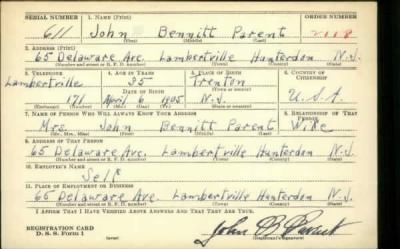 SERIAL NUMBER 1. NAME (Print) ORDER NUMBER
611 John Bennitt Parent
(First) (Middle) (Last)
2. ADDRESS (Print)
65 Delaware Ave. Lambertville Hunterdon N.J.
(Number and street or R. F. D. number) (Town) (County) (State)
3. TELEPHONE 4. AGE IN YEARS 5. PLACE OF BIRTH 6. COUNTRY OF CITIZENSHIP
Lambertville 35 Trenton
DATE OF BIRTH
171 April 6 1905 N.J. U.S.A.
(Exchange) (Number) (Mo.) (Day) (Yr.) (State or country)
7. NAME OF PERSON WHO WILL ALWAYS KNOW YOUR ADDRESS 8. RELATIONSHIP OF THAT PERSON
Mrs. John Bennitt Parent Wife
(Mr., Mrs., Miss) (First) (Middle) (Last)
9. ADDRESS OF THAT PERSON
65 Delaware Ave. Lambertville Hunterdon N.J.
(Number and street or R. F. D. number) (Town) (County) (State)
10. EMPLOYER'S NAME
Self
11. PLACE OF EMPLOYMENT OR BUSINESS
65 Delaware Ave. Lambertville Hunterdon N.J.
(Number and street or R. F. D. number) (Town) (County) (State)
I AFFIRM THAT I HAVE VERIFIED ABOVE ANSWERS AND THAT THEY ARE TRUE.
REGISTRATION CARD
D. S. S. Form 1
John B Parent
(Registrant's signature)